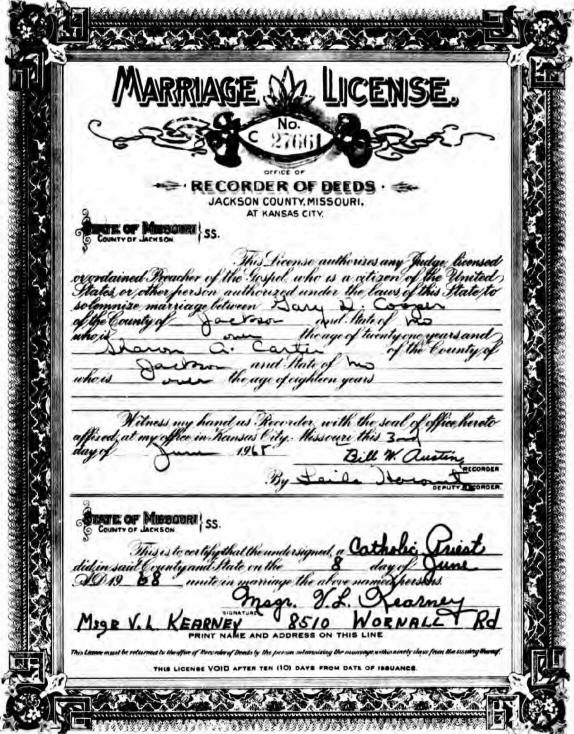 MARRIAGE LICENSE.
No.
C 27661
OFFICE OF
RECORDER OF DEEDS
JACKSON COUNTY, MISSOURI,
AT KANSAS CITY.
STATE OF MISSOURI
COUNTY OF JACKSON } SS.
This License authorizes any Judge, licensed
or ordained Preacher of the Gospel, who is a citizen of the United
States, or other person authorized under the laws of this State, to
solemnize marriage between Gary D. Cooper
of the County of Jackson and State of Mo
who is over the age of twenty one years and
Sharon A. Carter of the County of
Jackson and State of Mo
who is over the age of eighteen years
Witness my hand as Recorder, with the seal of office hereto
affixed, at my office in Kansas City, Missouri this 3rd
day of June 1968
Bill W. Austin
RECORDER
By Leila
DEPUTY RECORDER.
STATE OF MISSOURI
COUNTY OF JACKSON } SS.
This is to certify that the undersigned, a Catholic Priest
did, in said County and State on the 8 day of June
A.D. 1968 unite in marriage the above named persons.
Msgr. V.L. Kearney
SIGNATURE
Msgr V.L. KEARNEY 8510 WORNALL Rd
PRINT NAME AND ADDRESS ON THIS LINE
This License must be returned to the office of Recorder of Deeds by the person solemnizing the marriage, within ninety days from the issuing thereof.
THIS LICENSE VOID AFTER TEN (10) DAYS FROM DATE OF ISSUANCE.